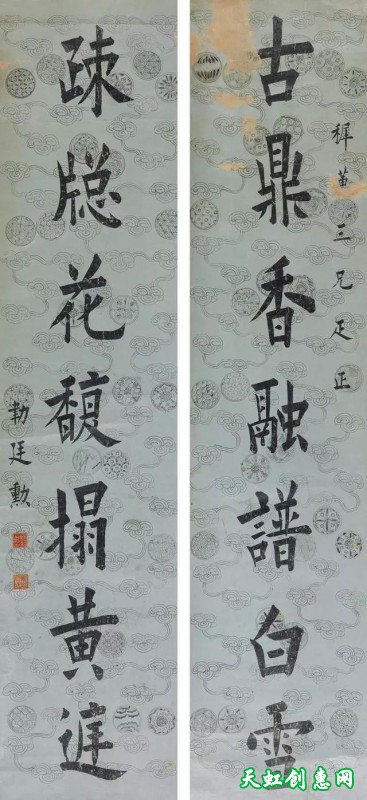 穉苗三兄足正
古鼎香融譜白雪
疎牕花馥搨黄庭
廷勳
天虹创惠网